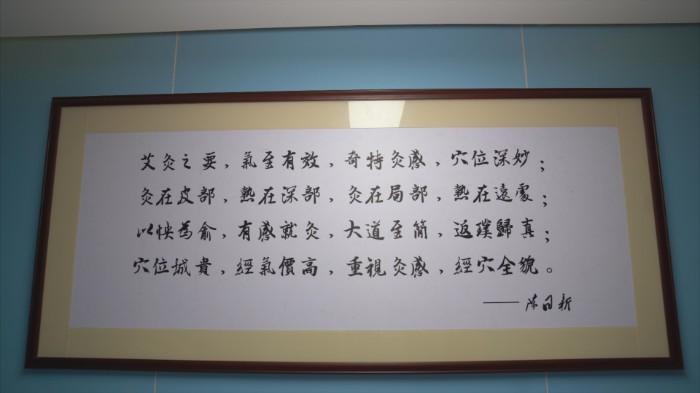 艾灸之要，氣至有效，奇特灸感，穴位深妙；
灸在皮部，熱在深部，灸在局部，熱在遠處；
以快為俞，有感就灸，大道至簡，返璞歸真；
穴位城貴，經氣價高，重視灸感，經穴全貌。
——陈日新